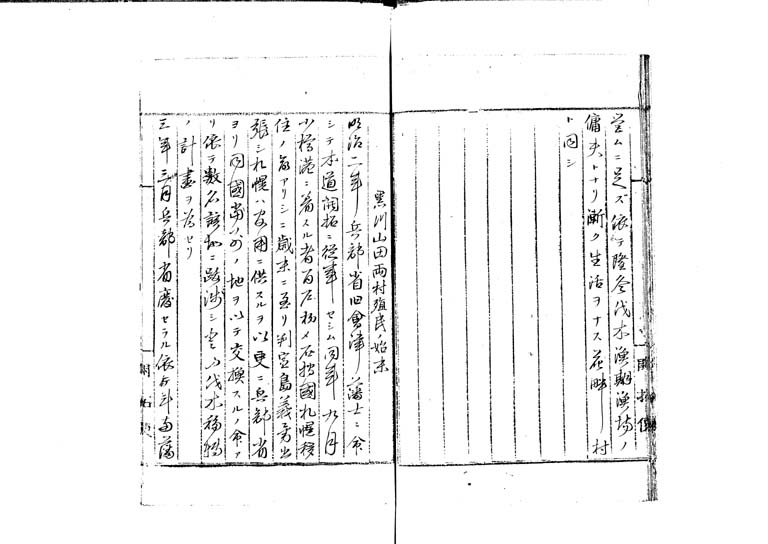 営ムニ足ズ依テ隆冬伐木漁期漁場ノ
傭夫トナリ漸ク生活ヲナス花畔村
ト同シ
黒川山田両村殖民ノ始末
明治二年兵部省旧會津ノ藩士ニ命
シテ本道開拓ニ従事セシム同年九月
小樽港ニ着スル者百戸初メ石狩國札幌移
住ノ命アリシニ歳末ニ至リ判官島義勇出
張シ札幌ハ官用ニ供スルヲ以更ニ兵部省
ヨリ同國当別ノ地ヲ以テ交換スルノ命ア
リ依テ数名該地ニ跋渉シ
ノ計畫ヲ為セリ
三年三月兵部省廃セラル依
開拓使
開拓使